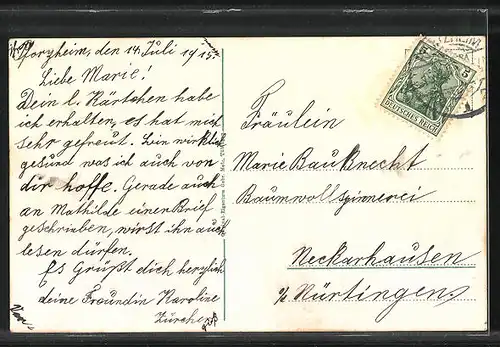 Pforzheim, den 14. Juli 1915.
Liebe Marie!
Dein l. Kärtchen habe
ich erhalten, es hat mich
sehr gefreut. Bin wirklich
gesund was ich auch von
dir hoffe. Gerade auch
an Mathilde einen Brief
geschrieben, wirst ihn auch
lesen dürfen.
Es Grüßt dich herzlich
deine Fraundin Karoline
Zürcher
5 5
DEUTSCHES REICH
Fräulein
Marie Bauknecht
Baumwollspinnerei
Neckarhausen
%Nürtingen